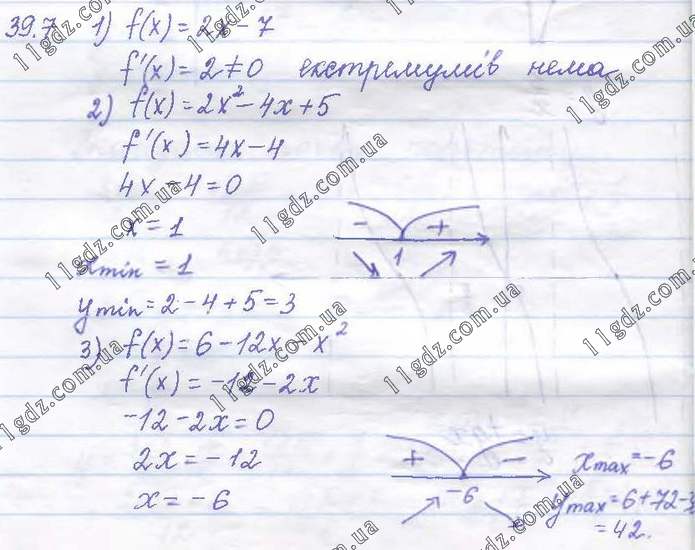 39.7 1) f(x) = 2x - 7
f'(x) = 2 ≠ 0 екстремумів нема
2) f(x) = 2x² - 4x + 5
f'(x) = 4x - 4
4x - 4 = 0
x = 1
- +
1
xmin = 1
ymin = 2 - 4 + 5 = 3
3) f(x) = 6 - 12x - x²
f'(x) = -12 - 2x
-12 - 2x = 0
2x = -12
x = -6
+ -
-6
xmax = -6
ymax = 6 + 72 - 3
= 42.
11gdz.com.ua
11gdz.com.ua
11gdz.com.ua
11gdz.com.ua
11gdz.com.ua
11gdz.com.ua
11gdz.com.ua
11gdz.com.ua
11gdz.com.ua